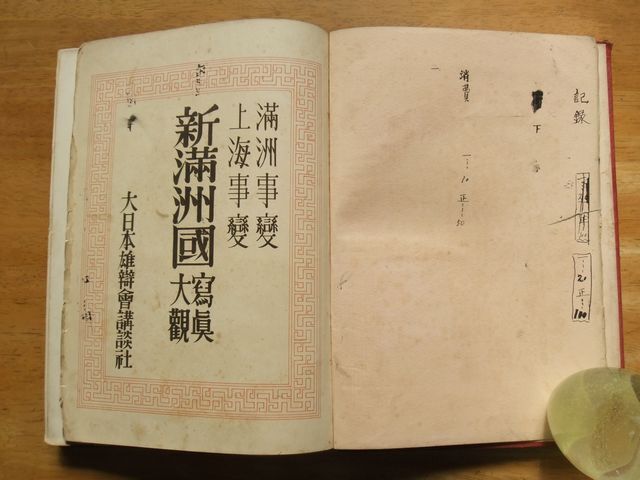 記錄
下
消費
一
滿洲事變
上海事變
新滿洲國寫眞大觀
大日本雄辯會講談社